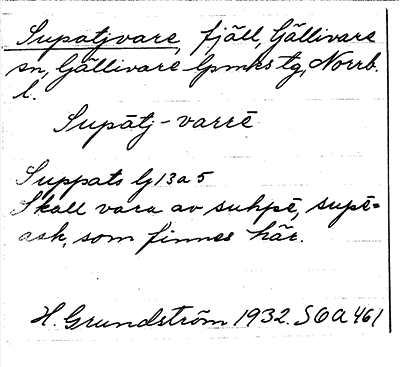 Supatjvare, fjäll, Gällivare
sn, Gällivare lpmks tg, Norrb.
l.
Supātj-varrē
Suppats lg 13 a 5
Skall vara av suhpē, supē=
ask, som finnes här.
H. Grundström 1932. SOA 461